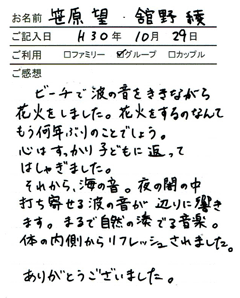 お名前 笹原 望 ・ 舘野 綾
ご記入日 H30年 10月 29日
ご利用 □ファミリー ☑グループ □カップル
ご感想
ビーチで波の音をききながら
花火をしました。花火をするのなんて
もう何年ぶりのことでしょう。
心はすっかり子どもに返って
はしゃぎました。
それから、海の音。夜の闇の中
打ち寄せる波の音が辺りに響き
ます。まるで自然の奏でる音楽。
体の内側からリフレッシュされました。
ありがとうございました。